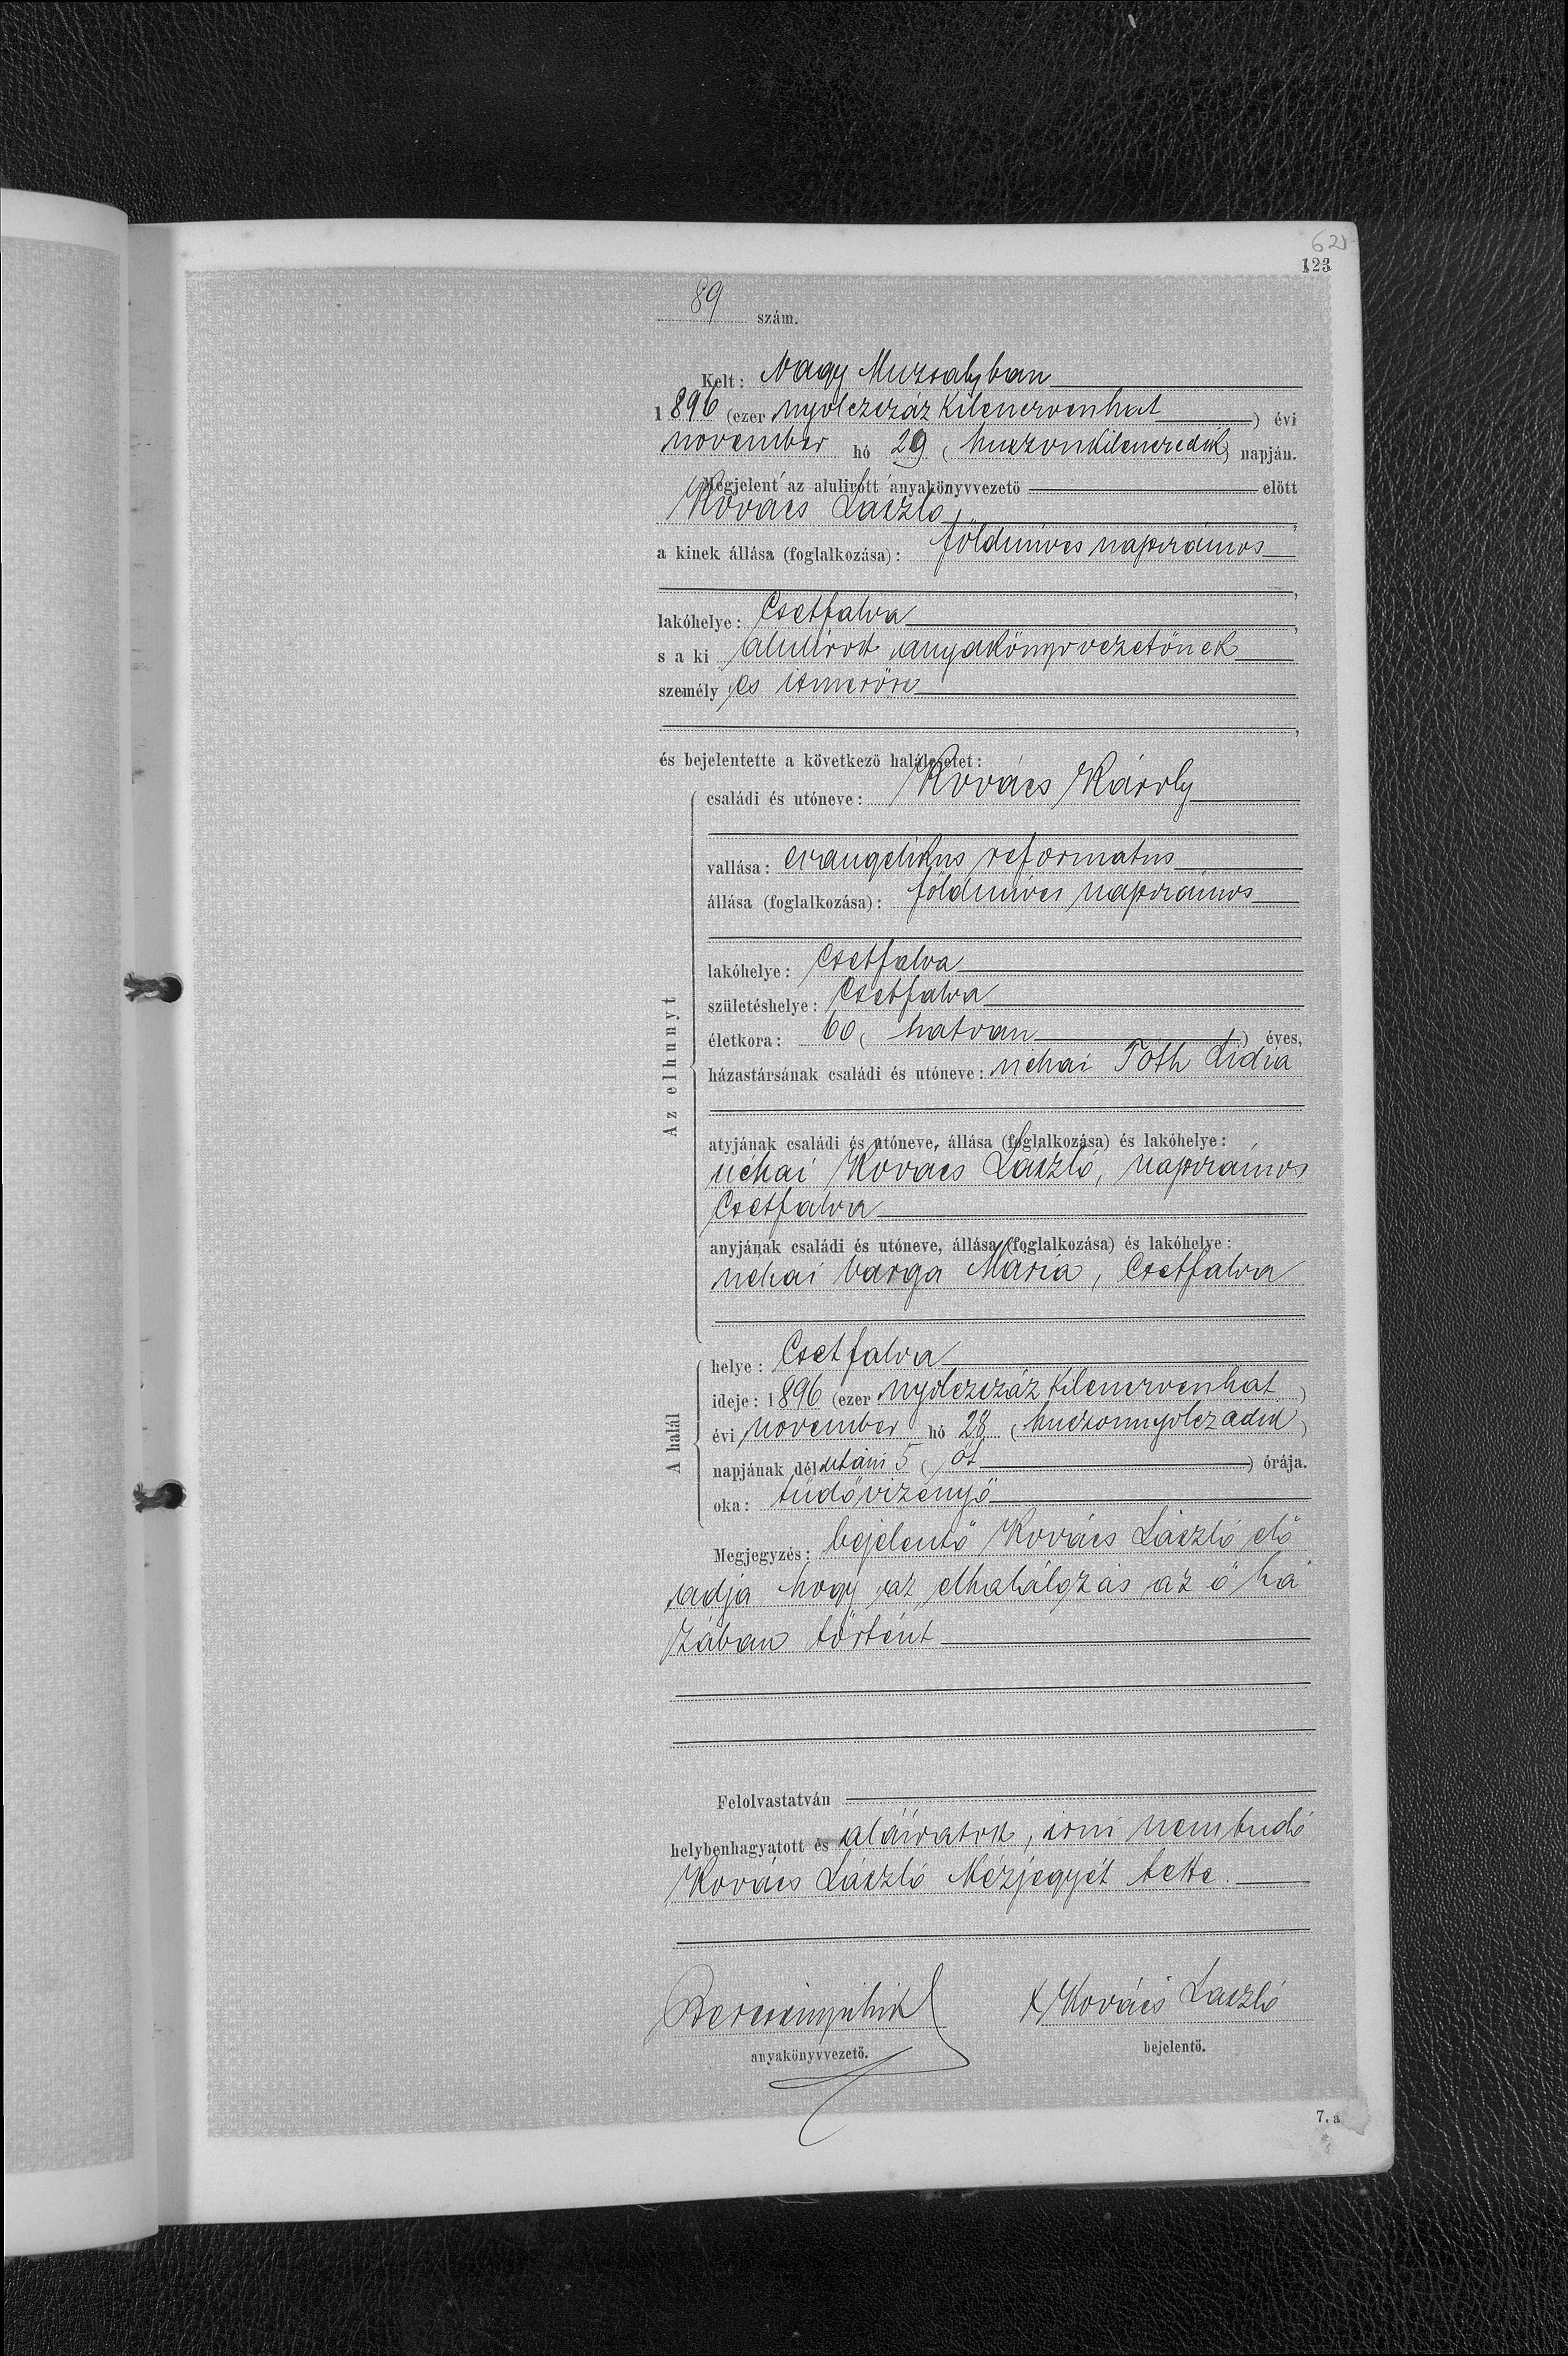 62
123
89 szám.
Kelt: Nagy Muzsalyban
1896 (ezer nyolczszáz kilenczvenhat) évi
november hó 29 (huszonkilenczedik) napján.
Megjelent az alulirott anyakönyvvezető előtt
Kovács László,
a kinek állása (foglalkozása): földmives napszámos
,
lakóhelye: Csetfalva,
s a ki alulirott anyakönyvvezetőnek
személyes ismerőse
,
és bejelentette a következő halálesetet:
Az elhunyt
családi és utóneve: Kovács Károly
vallása: evangelikus reformatus
állása (foglalkozása): földmives napszámos
lakóhelye: Csetfalva
születéshelye: Csetfalva
életkora: 60 (hatvan) éves,
házastársának családi és utóneve: néhai Tóth Lidia
atyjának családi és utóneve, állása (foglalkozása) és lakóhelye:
néhai Kovács László, napszámos
Csetfalva
anyjának családi és utóneve, állása (foglalkozása) és lakóhelye:
néhai Varga Mária, Csetfalva
A halál
helye: Csetfalva
ideje: 1896 (ezer nyolczszáz kilenczvenhat)
évi november hó 28 (huszonnyolczadik)
napjának délutáni 5 (öt) órája.
oka: tüdővizenyő
Megjegyzés: bejelentő Kovács László elő
adja hogy az elhalálozás az ő há
zában történt
Felolvastatván
helybenhagyatott és aláiratott, irni nem tudó
Kovács László kézjegyét tette.
x Kovács László
anyakönyvvezető. bejelentő.
7. a